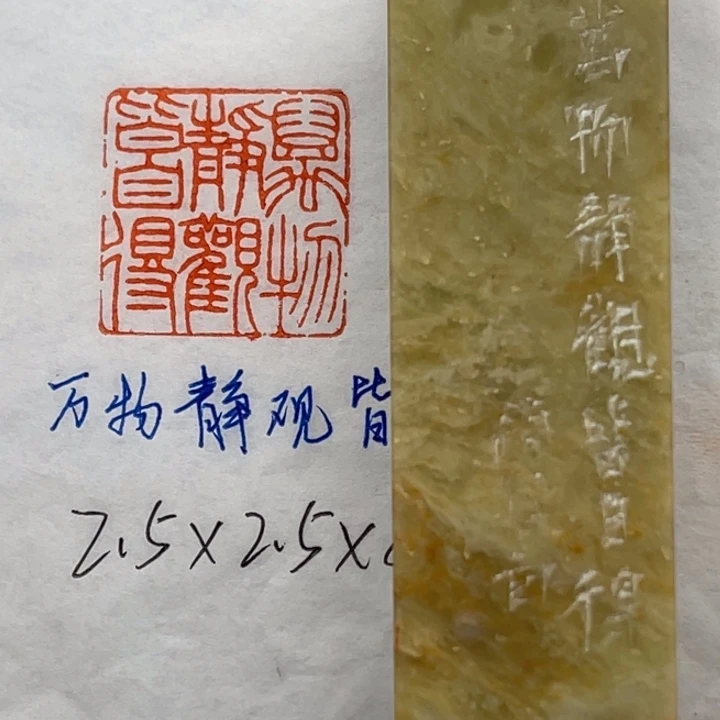 萬物
靜觀
皆自得
万物静观皆
2.5×2.5×
萬物靜觀皆自得